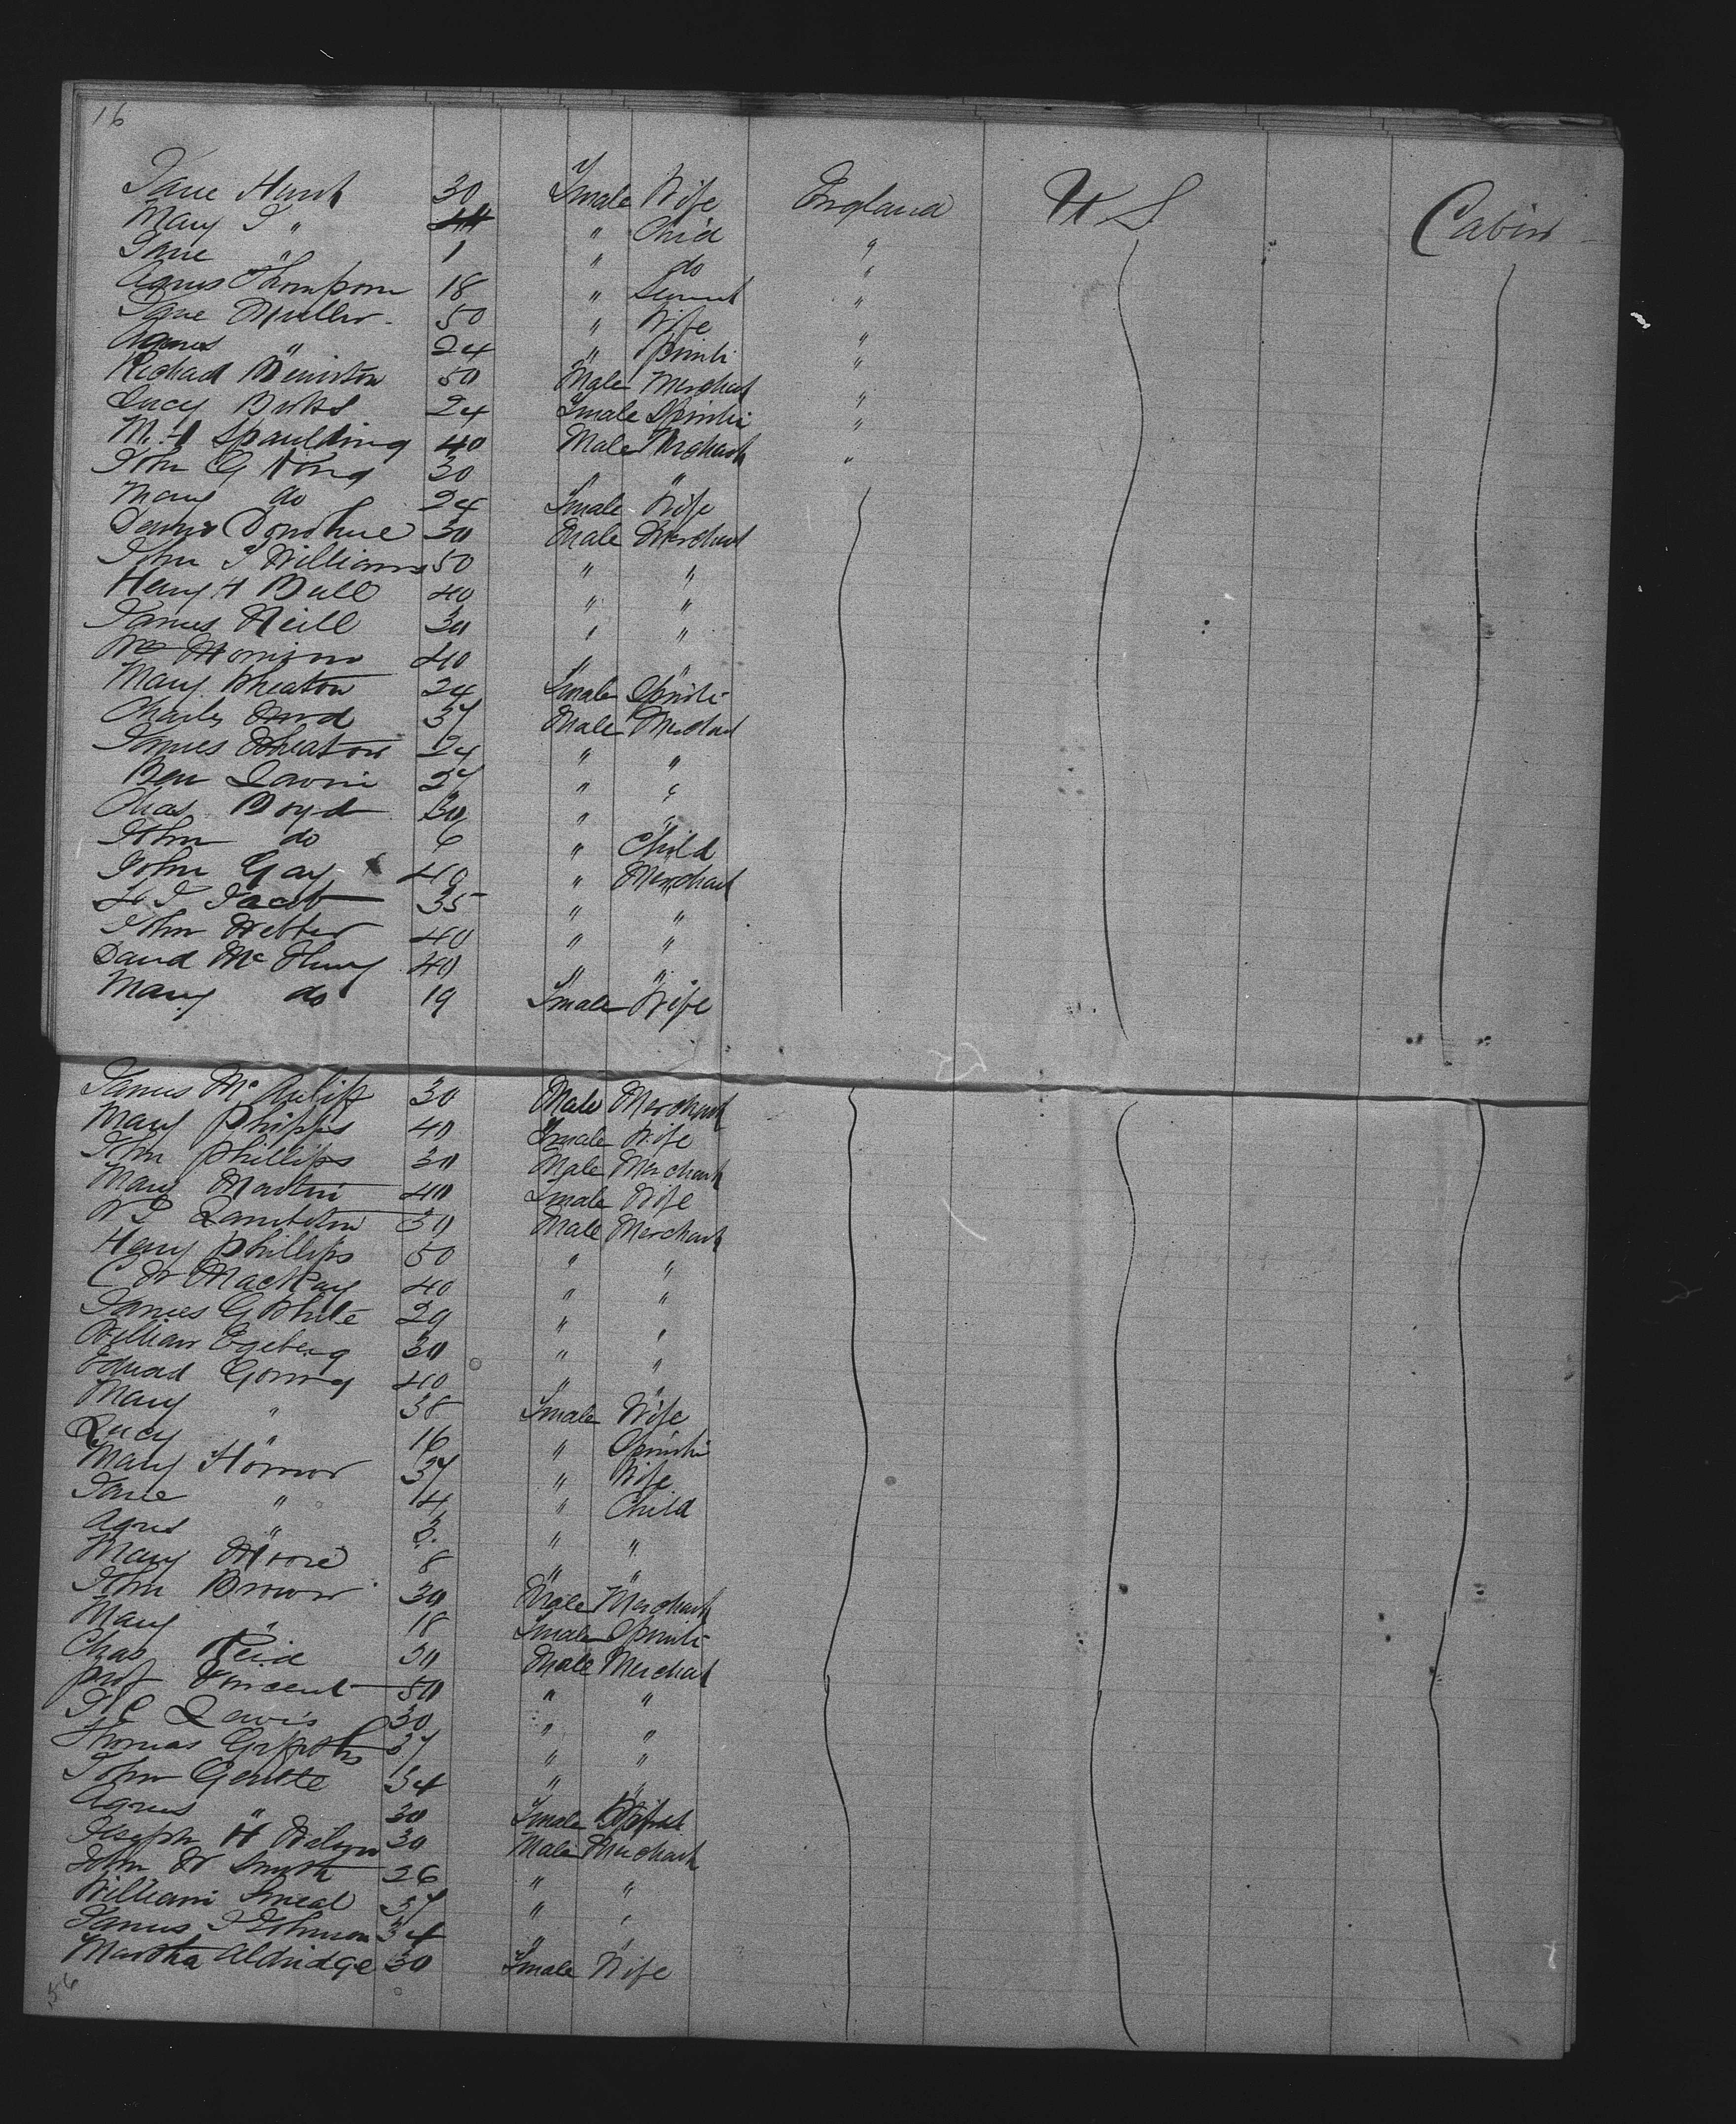 16
Jane Hunt 30 Female Wife England U S Cabin
Mary J " " Child "
Jane " 1 " do "
Agnes Thompson 18 " Servant "
Jane Muller 50 " Wife "
Agnes " 24 " "
Richard 50 Male Merchant "
Lucy 24 Female Spinster "
M. H Spaulding 40 Male Merchant "
John G King 30 "
Mary do 24 Female Wife
Dennis Donohue 30 Male Merchant
John J Williams 50 " "
Henry H Bull 40 " "
James Neill 30 " "
Wm Morrison 40 " "
Mary Wheaton 24 Female Spinster
Charles 37 Male Merchant
James Wheaton 24 " "
Ben 27 " "
Chas Boyd 30 " "
John do 6 " Child
John Gay 40 " Merchant
J Jacob 35 " "
John Webber 40 " "
David Mc 40 " "
Mary do 19 Female Wife
James Mc Auliff 30 Male Merchant
Mary Phipps 40 Female Wife
John Phillips 30 Male Merchant
Mary Martin 40 Female Wife
30 Male Merchant
Henry Phillips 50 " "
C W MacKay 40 " "
James G White 29 " "
William Egeberg 30 " "
Edward Goring 40 " "
Mary " 38 Female Wife
Lucy " 16 " Spinster
Mary Homor 37 " Wife
Jane " 4 " Child
Agnes " 3 " "
Mary Moore 8 " "
John Brown 30 Male Merchant
Mary " 18 Female Spinster
Chas Reid 30 Male Merchant
Prof Vincent 50 " "
Lewis 30 " "
Thomas Griffiths 37 " "
John Gentle 34 " "
Agnes " 30 Female
Joseph H Wilson 30 Male Merchant
John W Smith 26 " "
William Smeal 37 " "
James J Johnson 34 " "
Martha Aldridge 30 Female Wife
56